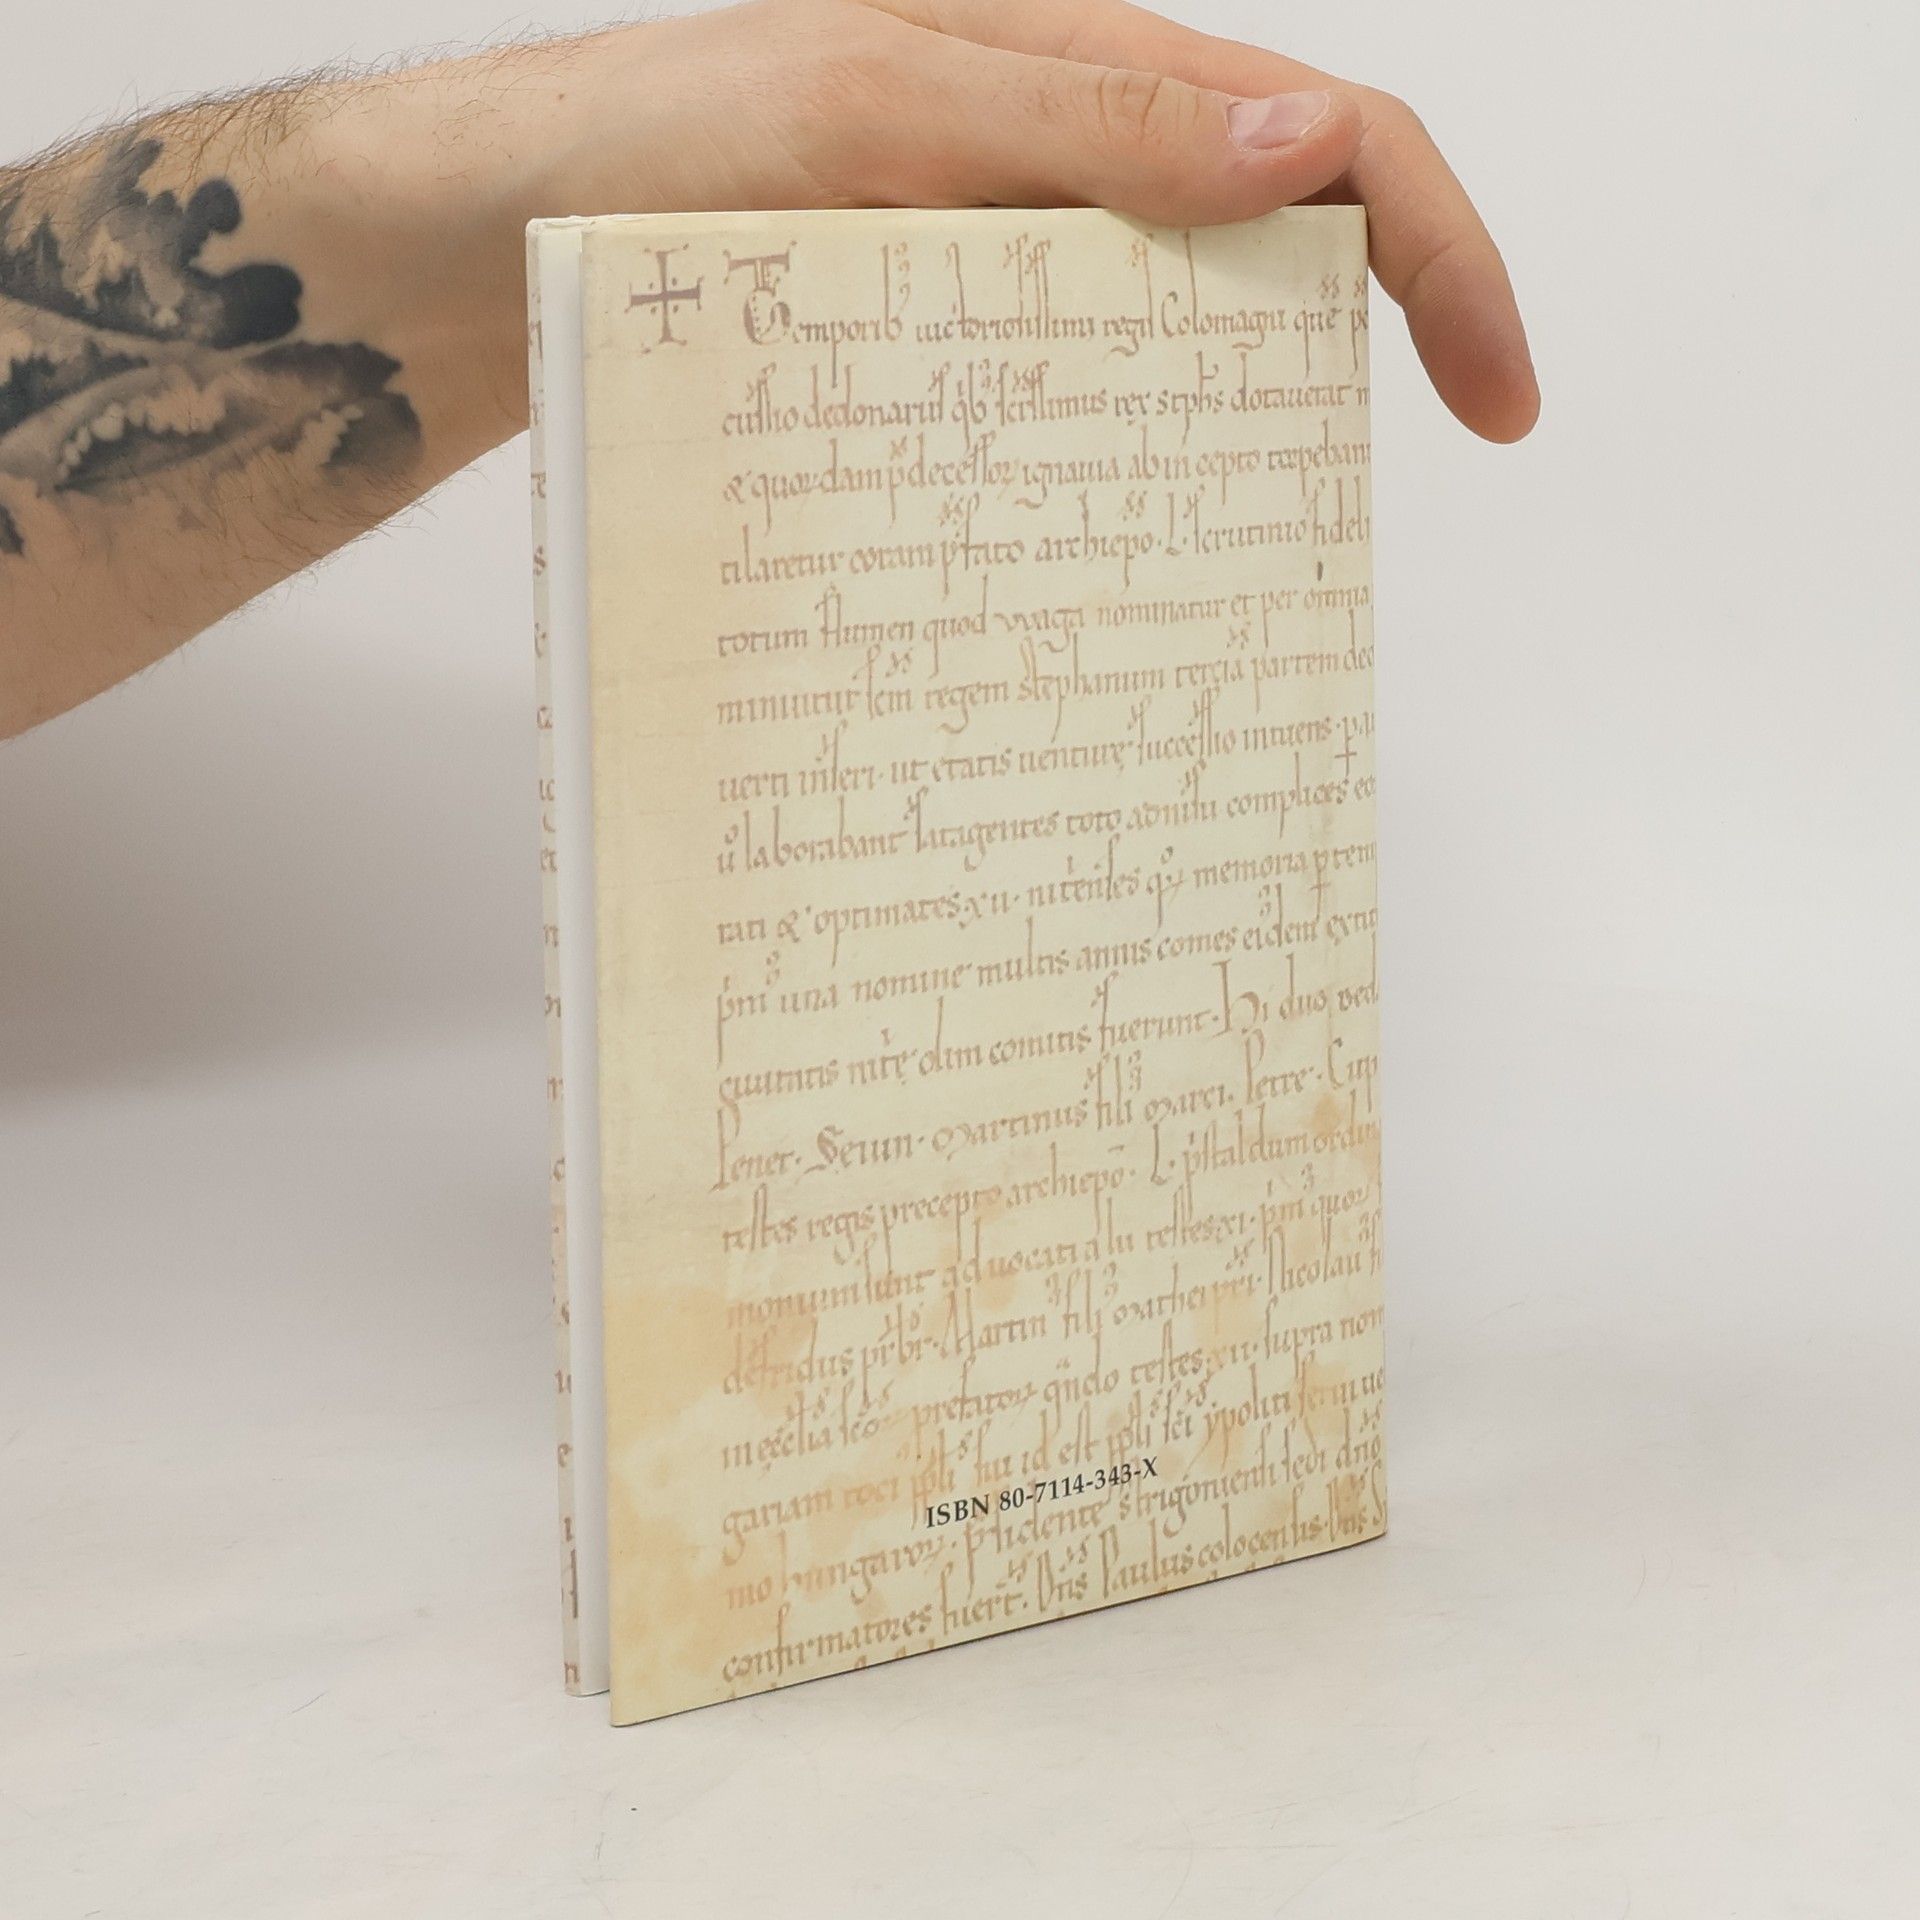 Temporib uictoriosissimi regis Colomagni que
cussio de donariis qib scissimus rex stphs dotauerat m
& quordam pdecessor ignauia ab incepto torpebant
tilaretur coram pfato archiepo. L. scrutinio fideli
totum flumen quod vvaga nominatur et per omnia
minuitur scm regem stephanum tercia partem
uerti inseri. ut etatis venture successio intuens.
u laborabant satagentes toto adnisu complices
rati & optimates. xii. nitrienses qr memoria
pm una nomine multis annis comes eidem
ciuitatis nitre olim comitis fuerunt. Hi duo
Penet. Seiun. Martinus fili Marci. Petre. Cup
testes regis precepto archiepo. L. pstaldum
monuui sunt advocati alii testes xi. pm quor
defridus prbr. Martin fili mathei pri. Nicolau
in ecclia scor prefator qndo testes xii. supra nom
gariam toci ppli sui id est ppli sci ypoliti
ISBN 80-7114-343-X
mo hungaror. psidente strigoniensi sedi dno
confirmatores fuert. Dns Paulus colocensis. Dns S